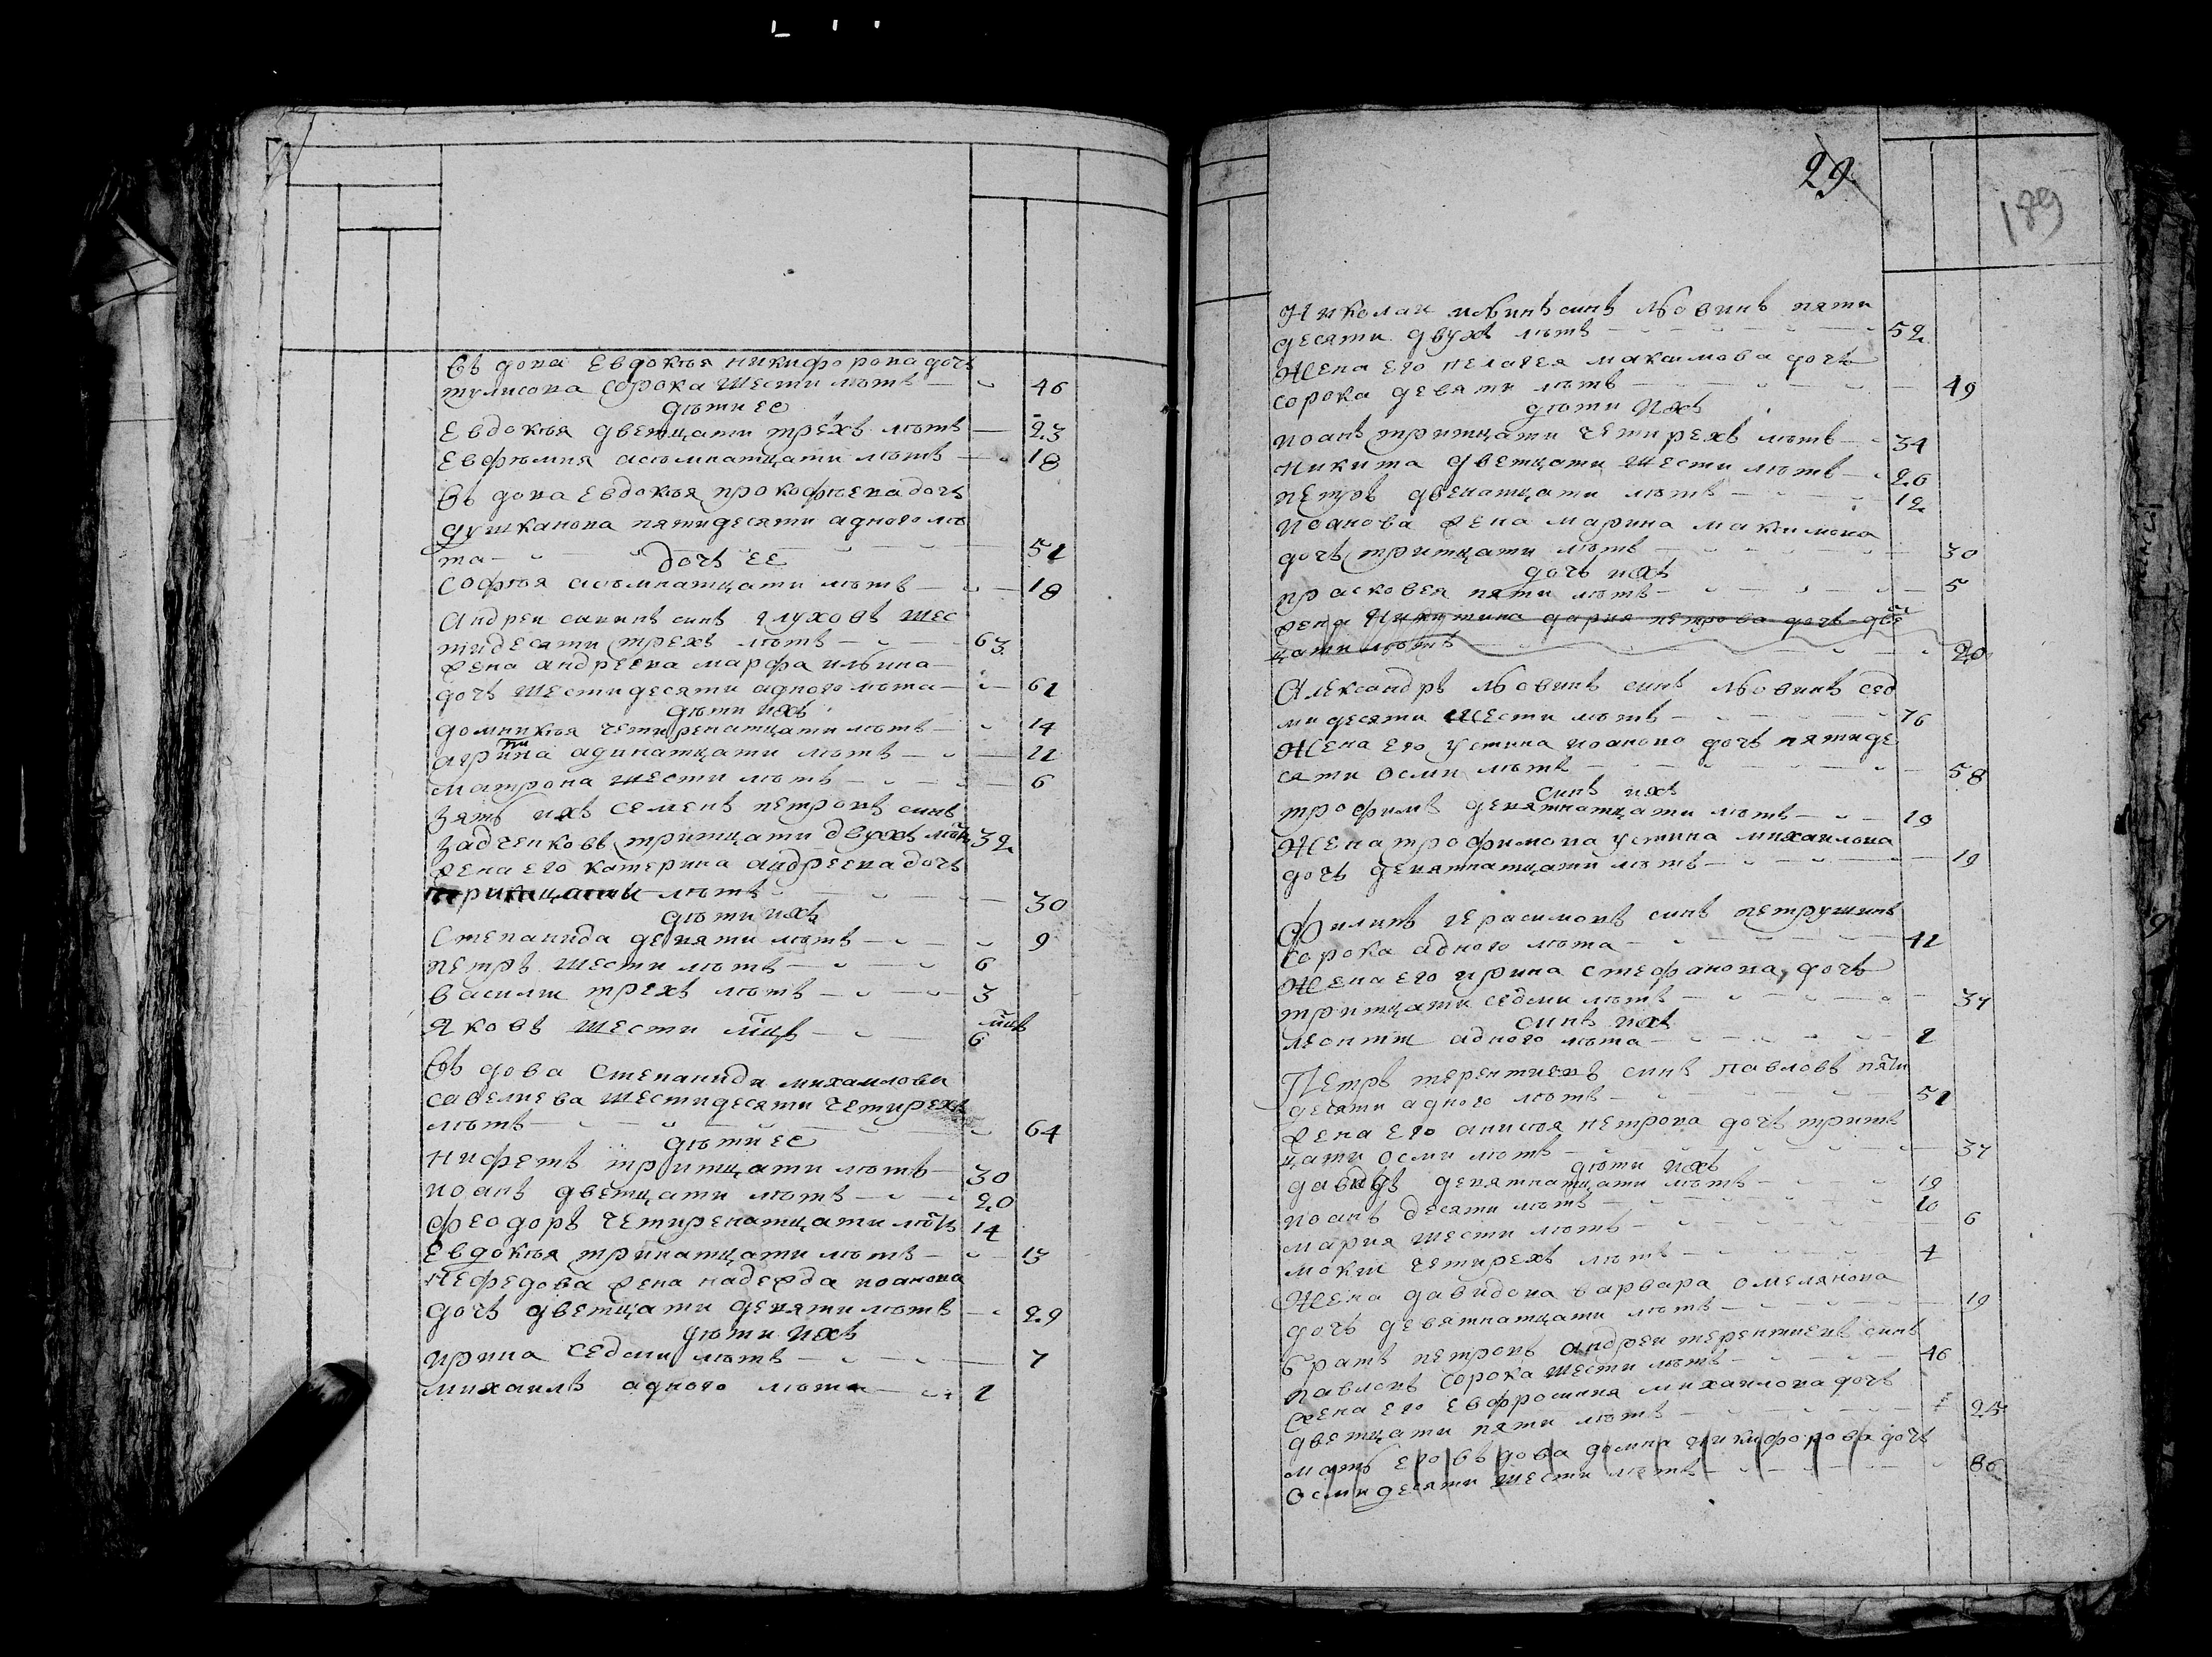 Въ дова Евдокѣя никифорова дочь
тулисова сорока шести лѣтъ 46
дѣти ее
Евдокѣя дветцати трехъ лѣтъ 23
Евфѣмия асѣмнатцати лѣтъ 18
Въ дова Евдокѣя прокофѣева дочь
душканова пятидесяти адного лѣ
та 51
дочь ее
софѣя асѣмнатцати лѣтъ 18
Андреи синъ глуховъ шес
тидесяти трехъ лѣтъ 63
жена андреева марфа ильина
дочь шестидесяти адного лѣта 61
дѣти ихъ
домникѣя четиренатцати лѣтъ 14
агрипина адинатцати лѣтъ 11
матрона шести лѣтъ 6
зять ихъ семенъ петровъ синъ
задченковъ тритцати двухъ лѣтъ 32
жена его катерина андреева дочь
тритцати лѣтъ 30
дѣти ихъ
степанида девяти лѣтъ 9
петръ шести лѣтъ 6
василии трехъ лѣтъ 3
яковъ шести мцъ мцъ 6
Въ дова степанида михаилова
савелиева шестидесяти четирехъ
лѣтъ 64
дѣти ее
нифетъ тритцати лѣтъ 30
иоанъ дветцати лѣтъ 20
феодоръ четиренатцати лѣтъ 14
Евдокѣя тринатцати лѣтъ 13
нефедова жена надежда иоанова
дочь дветцати девяти лѣтъ 29
дѣти ихъ
ирина седми лѣтъ 7
михаилъ адного лѣта 1
29
189
Николаи ильинъ синъ львинъ пяти
десяти двухъ лѣтъ 52
Жена его пелагея максимова дочь
сорока девяти лѣтъ 49
дѣти ихъ
иоанъ тритцати четирехъ лѣтъ 34
никита дветцати шести лѣтъ 26
петръ двенатцати лѣтъ 12
иоанова жена марина максимова
дочь тритцати лѣтъ 30
дочь ихъ
прасковея пяти лѣтъ 5
жена никитина дария петрова дочь две
цати лѣтъ 20
Александръ львинъ синъ львинъ сед
мидесяти шести лѣтъ 76
Жена его устина иоанова дочь пятиде
сяти осми лѣтъ 58
синъ ихъ
трофимъ девятнатцати лѣтъ 19
Жена трофимова устина михаилова
дочь девятнатцати лѣтъ 19
Филипъ герасимовъ синъ петрушинъ
сорока адного лѣта 41
Жена его ирина стефанова дочь
тритцати седми лѣтъ 37
синъ ихъ
леонтии адного лѣта 1
Петръ терентиевъ синъ павловъ пяти
десяти адного лѣтъ 51
жена его анисѣя петрова дочь тритъ
цати осми лѣтъ 37
дѣти ихъ
давидъ девятнатцати лѣтъ 19
иоанъ десяти лѣтъ 10
мария шести лѣтъ 6
мокии четирехъ лѣтъ 4
Жена давидова варвара омелянова
дочь девятнатцати лѣтъ 19
братъ петровъ андреи терентиевъ синъ
павловъ сорока шести лѣтъ 46
жена его евфросиния михаилова дочь
дветцати пяти лѣтъ 25
мать его въ дова домна никифорова дочь
осмидесяти шести лѣтъ 86